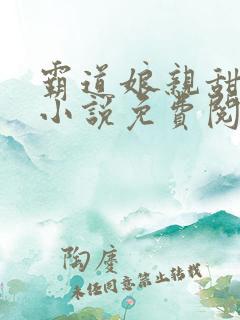 霸道娘親甜
小說免費閱
陶慶
未经同意禁止转载